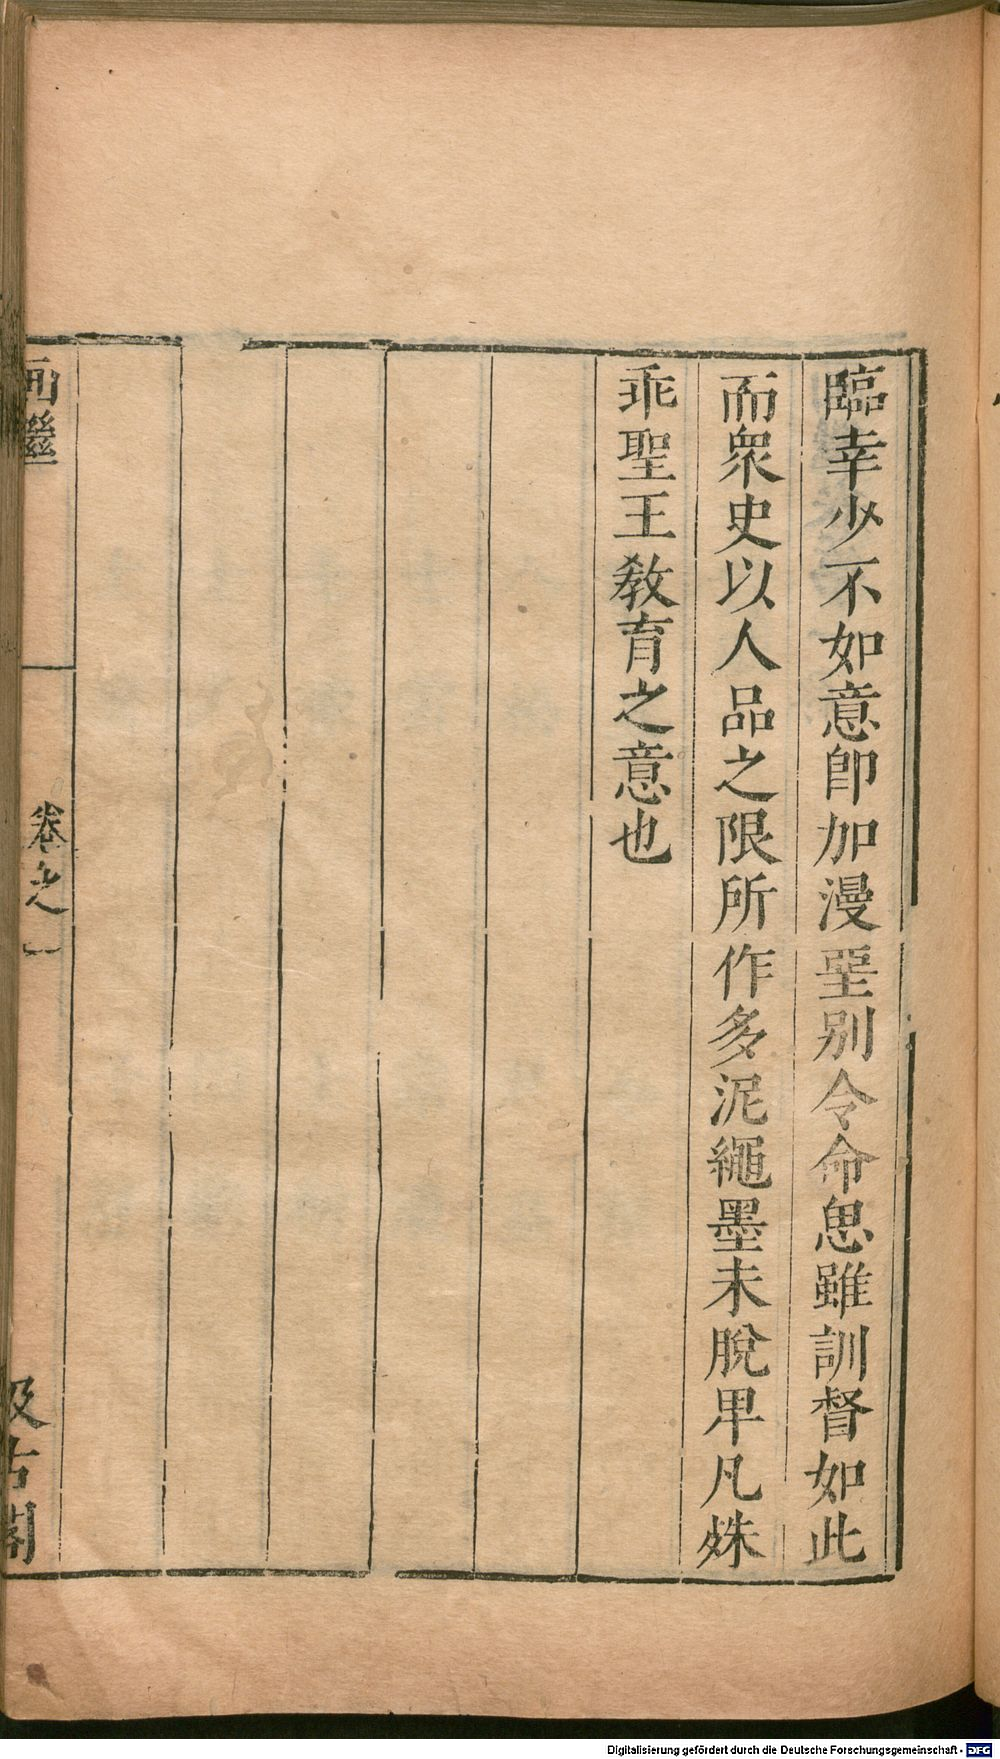 臨幸少不如意卽加漫堊別令命思雖訓督如此
而衆史以人品之限所作多泥繩墨未脫畢凡殊
乖聖王敎育之意也
画繼
卷之一
汲古閣
Digitalisierung gefördert durch die Deutsche Forschungsgemeinschaft - DFG